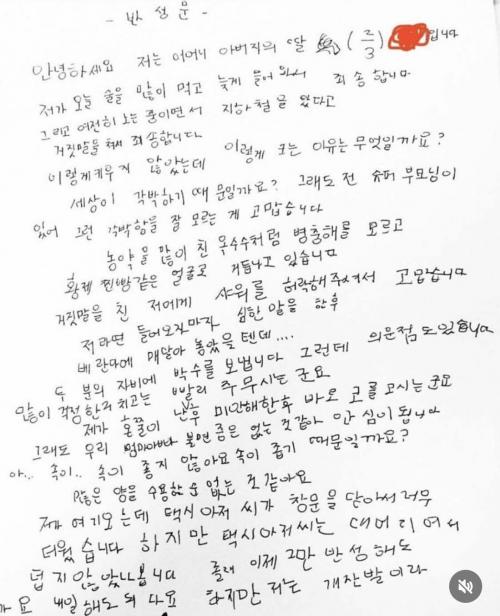 - 반 성 문 -
안녕하세요 저는 어머니 아버지의 딸 (곧/3) 입니다
저가 오늘 술을 많이 먹고 늦게 들어와서 죄송합니다
그리고 여전히 노는 중이면서 지하철을 있다고
거짓말을 쳐서 죄송합니다
이렇게 키우지 않았는데 이렇게 크는 이유는 무엇일까요?
세상이 각박하기 때문일까요? 그래도 전 슈퍼 부모님이
있어 그런 각박함을 잘 모르는 게 고맙습니다
농약을 많이 친 옥수수처럼 병충해를 모르고
황제 찐빵같은 얼굴로 거듭나고 있습니다
거짓말을 친 저에게 샤워를 허락해주셔서 고맙습니다
저라면 들어오자마자 심한 말을 한 후
베란다에 매달아 놓았을 텐데....
두 분의 자비에 박수를 보냅니다 그런데 의문점도 있습니다
많이 걱정한거 치고는 빨리 주무시는군요
제가 혼쭐이 난 후 미간해한후 바로 코를 고시는군요
그래도 우리 엄마아빠가 불면증은 없는 것 같아 안심이 됩니다
아... 속이.. 속이 좋지 않아요 속이 좁기 때문일까요?
많은 양을 수용할 순 없는 것 같아요
제가 여기오는데 택시아저씨가 창문을 닫아서 너무
더웠습니다 하지만 택시아저씨는 대머리여서
덥지 않았나봅니다 졸려 이제 그만 반성해도
가요 내일해도 되나요 하지만 저는 개찬발이라